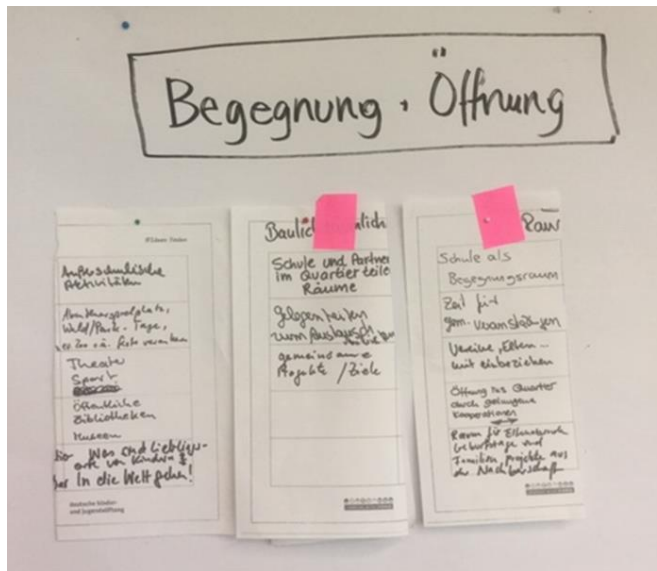 Begegnung + Öffnung
Außerschulische
Aktivitäten
Theater
Sport
öffentliche
Bibliotheken
Museen
Was sind Lieblings-
orte von Kindern?
In die Welt gehen!
deutsche kinder-
und jugendstiftung
Schule und Partner
im Quartier teilen
Räume
Gelegenheiten
zum Austausch
gemeinsame
Projekte / Ziele
Schule als
Begegnungsraum
Zeit für
gem.
Vereine, Eltern ...
mit einbeziehen
Öffnung ins Quartier
durch gelungene
Kooperationen
Raum für
Geburtstage und
Familien, Projekte aus
der Nachbarschaft